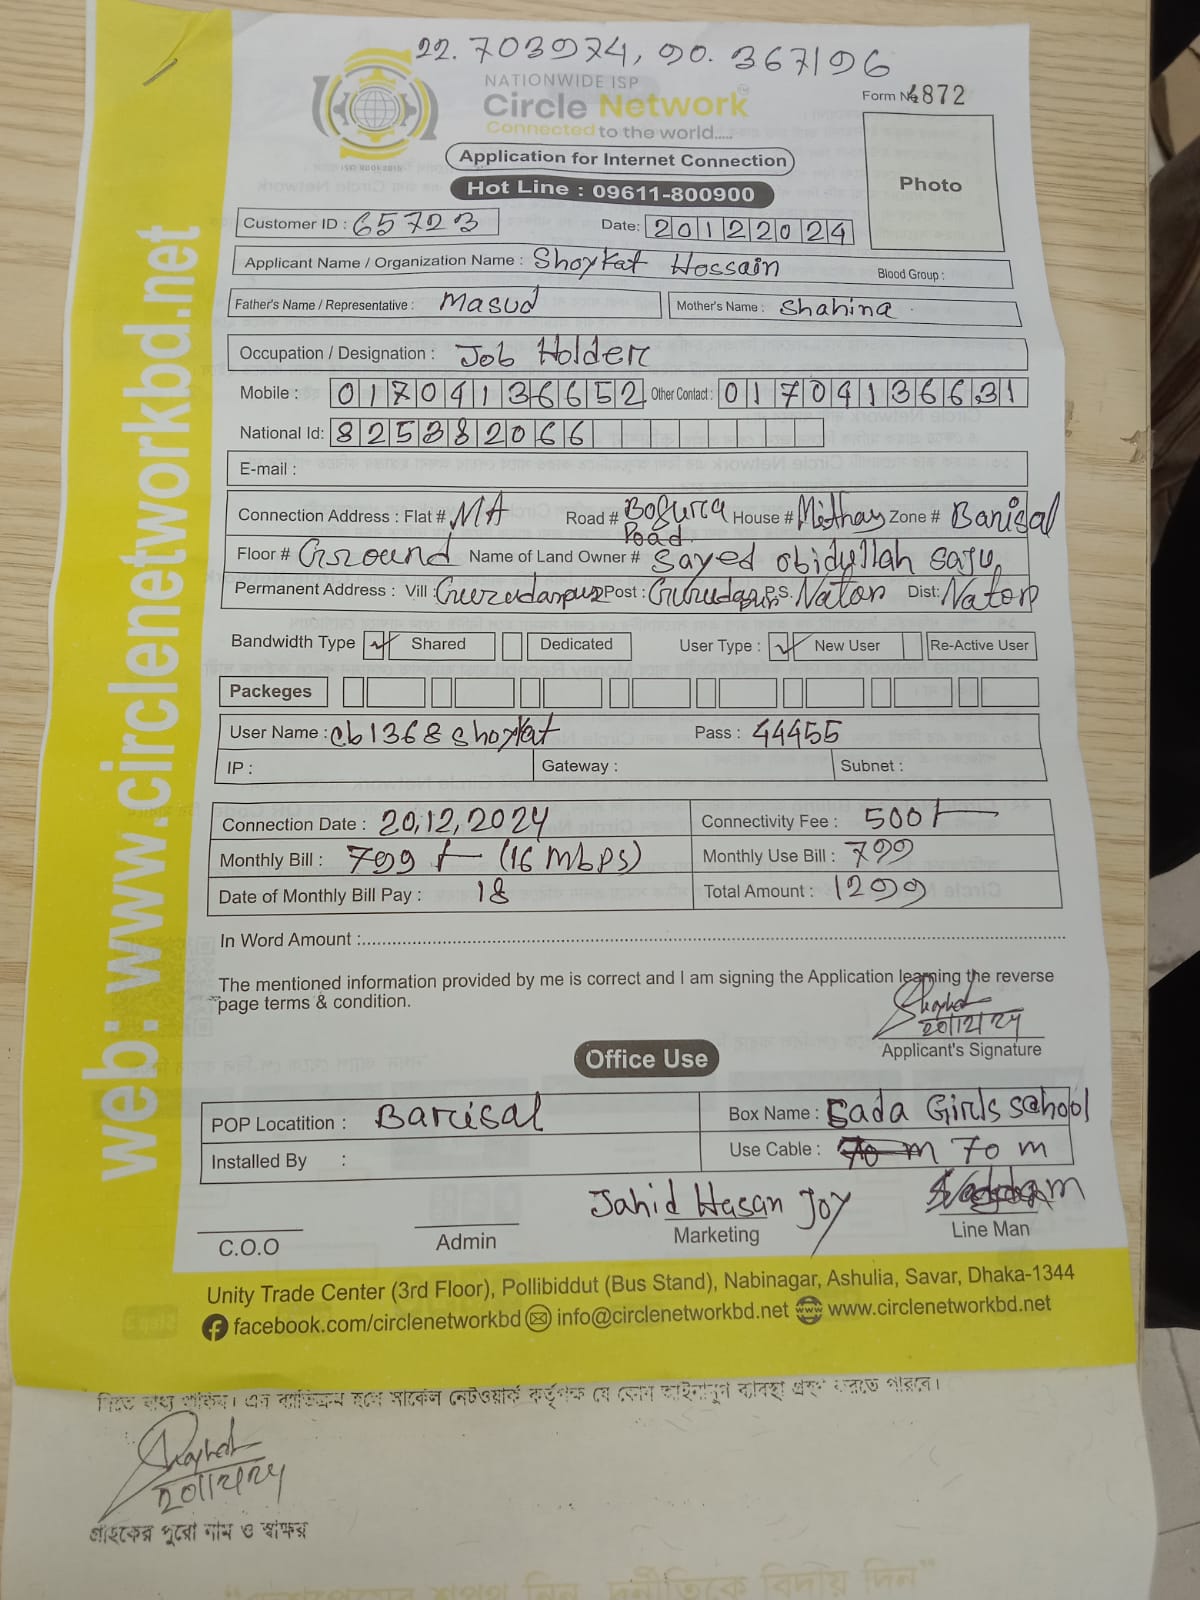 22.703974, 90.367196
NATIONWIDE ISP
Circle Network
Connected to the world.....
Form № 4872
Application for Internet Connection
Photo
Hot Line : 09611-800900
Customer ID : 65723 Date: 20122024
Applicant Name / Organization Name : Shoykat Hossain Blood Group :
Father's Name / Representative : Masud Mother's Name : Shahina
Occupation / Designation : Job Holder
Mobile : 01704136652 Other Contact : 01704136631
National Id: 825382066
E-mail :
Connection Address : Flat # NA Road # Bogura Road House # Zone # Barisal
Floor # Ground Name of Land Owner # Sayed Obidullah Saju
Permanent Address : Vill : Gurudaspur Post : Gurudaspur P.S. Nator Dist: Nator
Bandwidth Type ✓ Shared Dedicated User Type : ✓ New User Re-Active User
Packeges
User Name : cb1368shoykat Pass : 44455
IP : Gateway : Subnet :
Connection Date : 20,12,2024 Connectivity Fee : 500/-
Monthly Bill : 799/- (16 Mbps) Monthly Use Bill : 799
Date of Monthly Bill Pay : 18 Total Amount : 1299
In Word Amount :
The mentioned information provided by me is correct and I am signing the Application learning the reverse
page terms & condition.
Shoykat
20/12/24
Applicant's Signature
Office Use
POP Locatition : Barisal Box Name : Sada Girls School
Installed By : Use Cable : 70 m
Jahid Hasan Joy
C.O.O Admin Marketing Line Man
Unity Trade Center (3rd Floor), Pollibiddut (Bus Stand), Nabinagar, Ashulia, Savar, Dhaka-1344
facebook.com/circlenetworkbd info@circlenetworkbd.net www.circlenetworkbd.net
web: www.circlenetworkbd.net
দিতে বাধ্য থাকিব। এর ব্যতিক্রম হলে সার্কেল নেটওয়ার্ক কর্তৃপক্ষ যে কোন আইনানুগ ব্যবস্থা গ্রহণ করতে পারবে।
Shoykat
20/12/24
গ্রাহকের পুরো নাম ও স্বাক্ষর